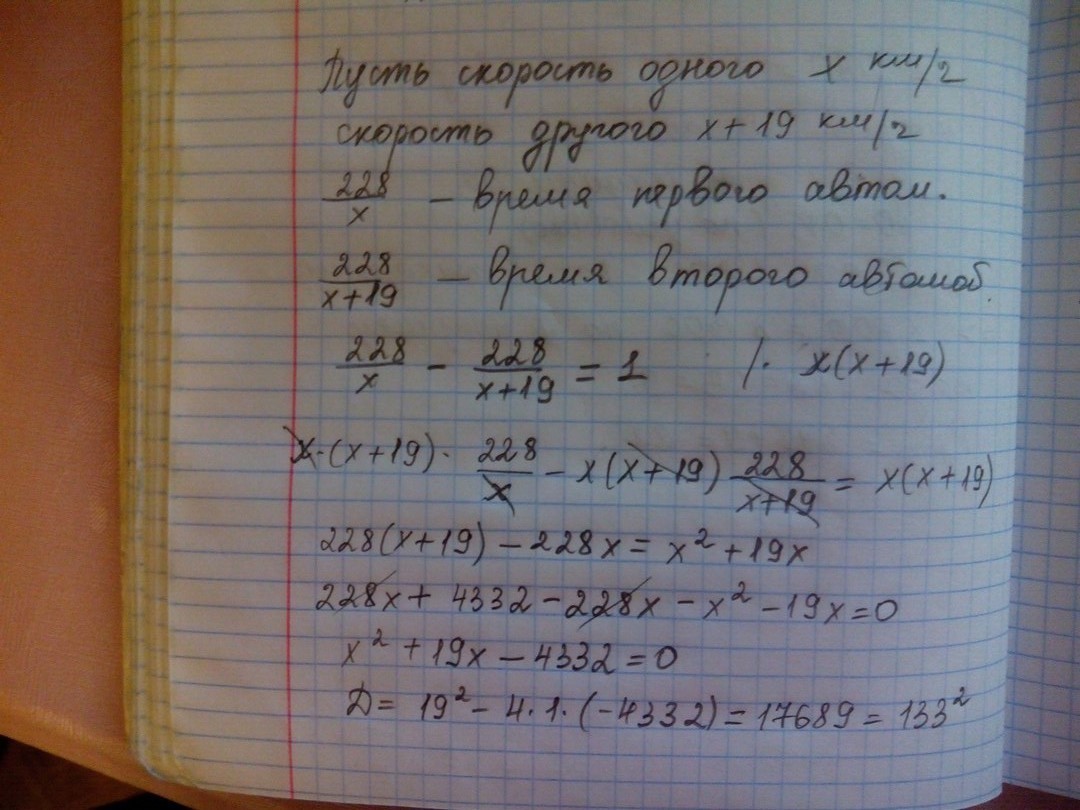 Пусть скорость одного x км/г
скорость другого x+19 км/г
228/x – время первого автом.
228/(x+19) – время второго автомоб.
228/x - 228/(x+19) = 1 /· x(x+19)
x·(x+19)· 228/x - x(x+19) 228/(x+19) = x(x+19)
228(x+19) - 228x = x² + 19x
228x + 4332 - 228x - x² - 19x = 0
x² + 19x - 4332 = 0
D = 19² - 4·1·(-4332) = 17689 = 133²